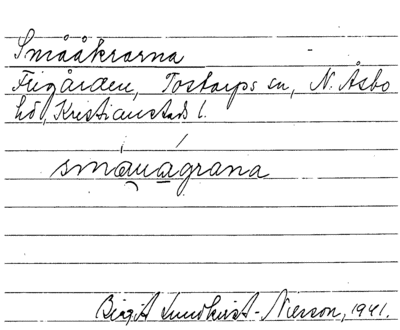 Smååkrarna
Frigården, Tostarps sn, N. Åsbo
hd, Kristianstads l.
småuagrana
Birgit Lundkvist-Nierson, 1941.